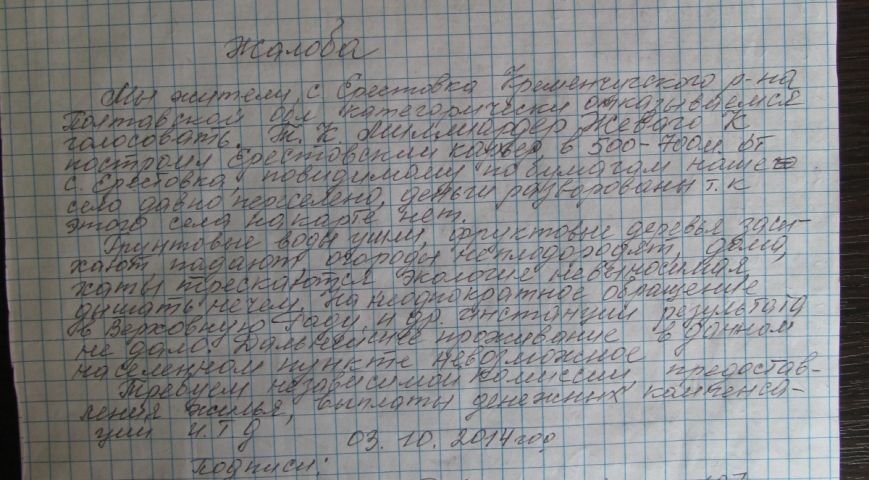 Жалоба
Мы жители с Ерестовка Кременчугского р-на
Полтавской обл категорически отказываемся
голосовать. Т. К. Миллиардер Жеваго К
построил Ерестовский карьер в 500-700м от
с. Ерестовка, повидимому по бумагам наше
село давно переселено, деньги разворованы т. к
этого села на карте нет.
Грунтовые воды ушли, фруктовые деревья засы-
хают падают, огороды неплодородят, дома,
хаты трескаются экология невыносимая,
дышать нечем. На неоднократное обращение
в Верховную Раду и др. инстанции результата
не дало. Дальнейшее проживание в данном
населенном пункте невозможное
Требуем независимой комиссии, предостав-
ления жилья, выплаты денежных компенса-
ции и. т д
03. 10. 2014год
Подписи: